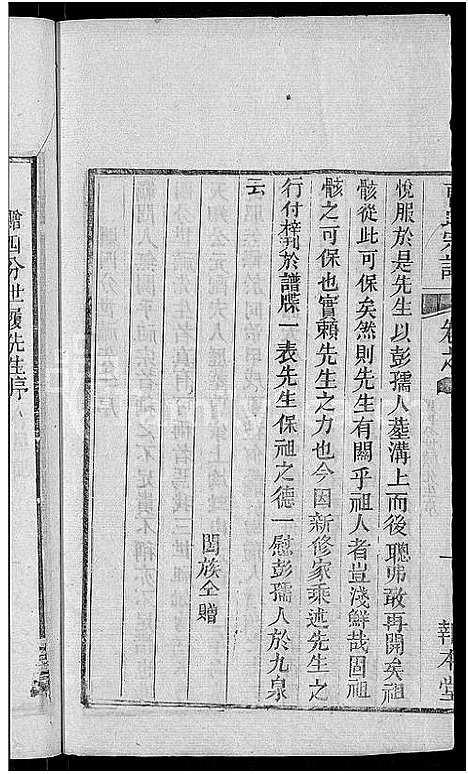 氏宗譜
卷之
報本堂
悅服於是先生以彭孺人墓溝上而後聰弗敢再開矣祖
骸從此可保矣然則先生有關乎祖人者豈淺鮮哉固祖
骸之可保也實賴先生之力也今因新修家乘述先生之
行付梓列於譜牒一表先生保祖之德一慰彭孺人於九泉
云
闔族仝贈
贈四分世履先生序